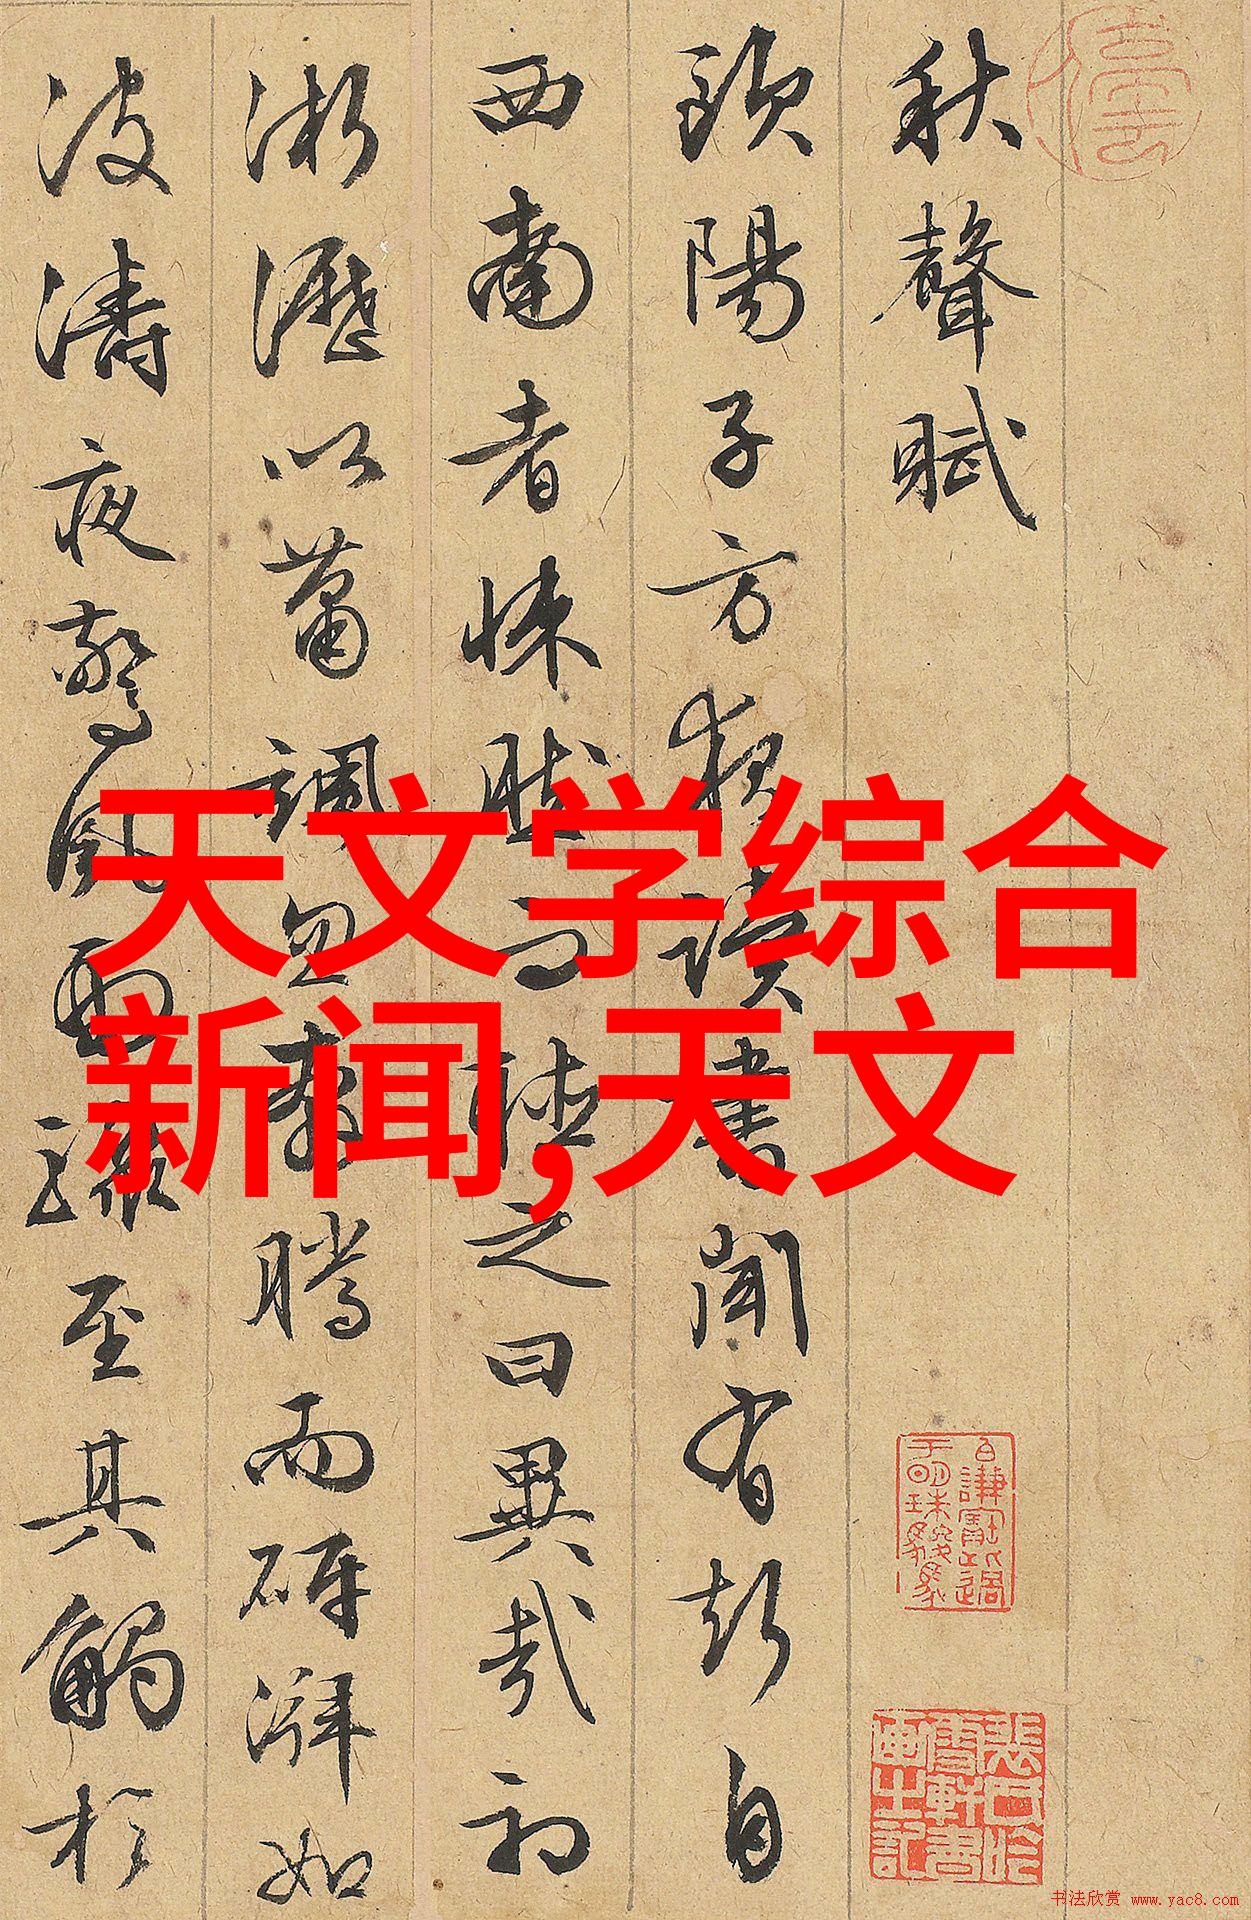 秋聲賦
歐陽子方夜讀書聞有聲自
西南者悚然而聽之曰異哉初
淅瀝以蕭颯忽奔騰而砰湃如
波濤夜驚風雨驟至其觸於
天文学综合
新闻,天文
书法欣赏 www.yac8.com